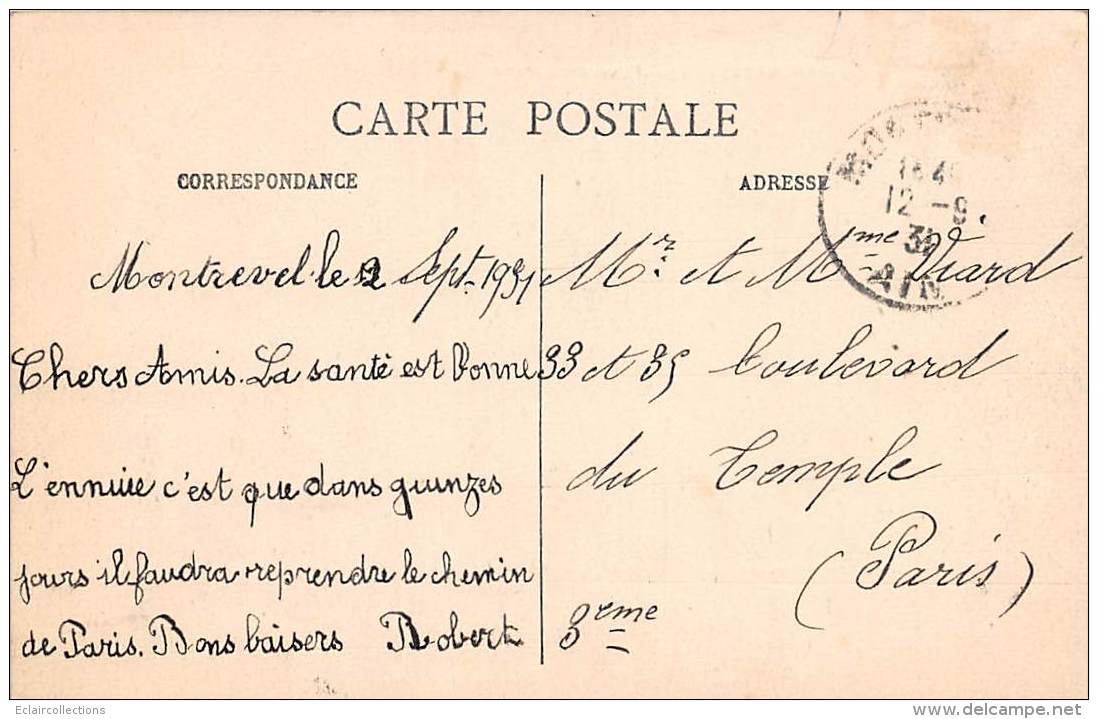 CARTE POSTALE
CORRESPONDANCE
Montrevel. le 12 Sept. 1931
Chers Amis. La santé est bonne
L'ennuie c'est que dans quinzes
jours il faudra reprendre le chemin
de Paris. Bons baisers Robert
ADRESSE
Mr. et Mme Viard
33 et 35 boulevard
du Temple
(Paris)
3eme
12 -9
31
AIN
Eclaircollections
www.delcampe.net